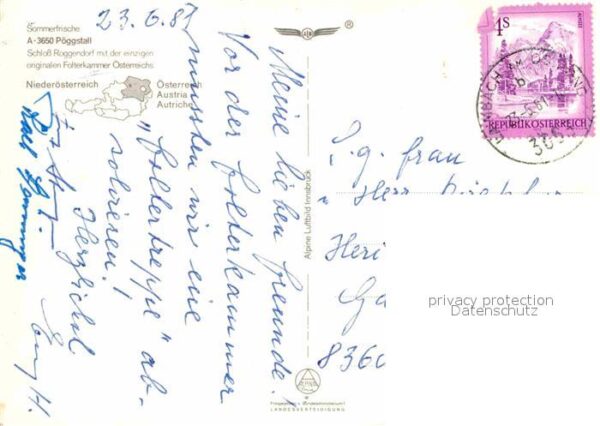 23.6.87
Sommerfrische
A-3650 Pöggstall
Schloß Roggendorf mit der einzigen
originalen Folterkammer Österreichs
Niederösterreich
Österreich
Austria
Autriche
Meine lieben Freunde!
Vor der Folterkammer
mussten wir eine
"Foltertreppe" ab-
solvieren!
Herzlichst
Alpine Luftbild Innsbruck
®
Freigegeben v. Bundesministerium f.
LANDESVERTEIDIGUNG
4S
REPUBLIK ÖSTERREICH
S.g. Frau
u Herr
Heri
Ga
8360
privacy protection
Datenschutz